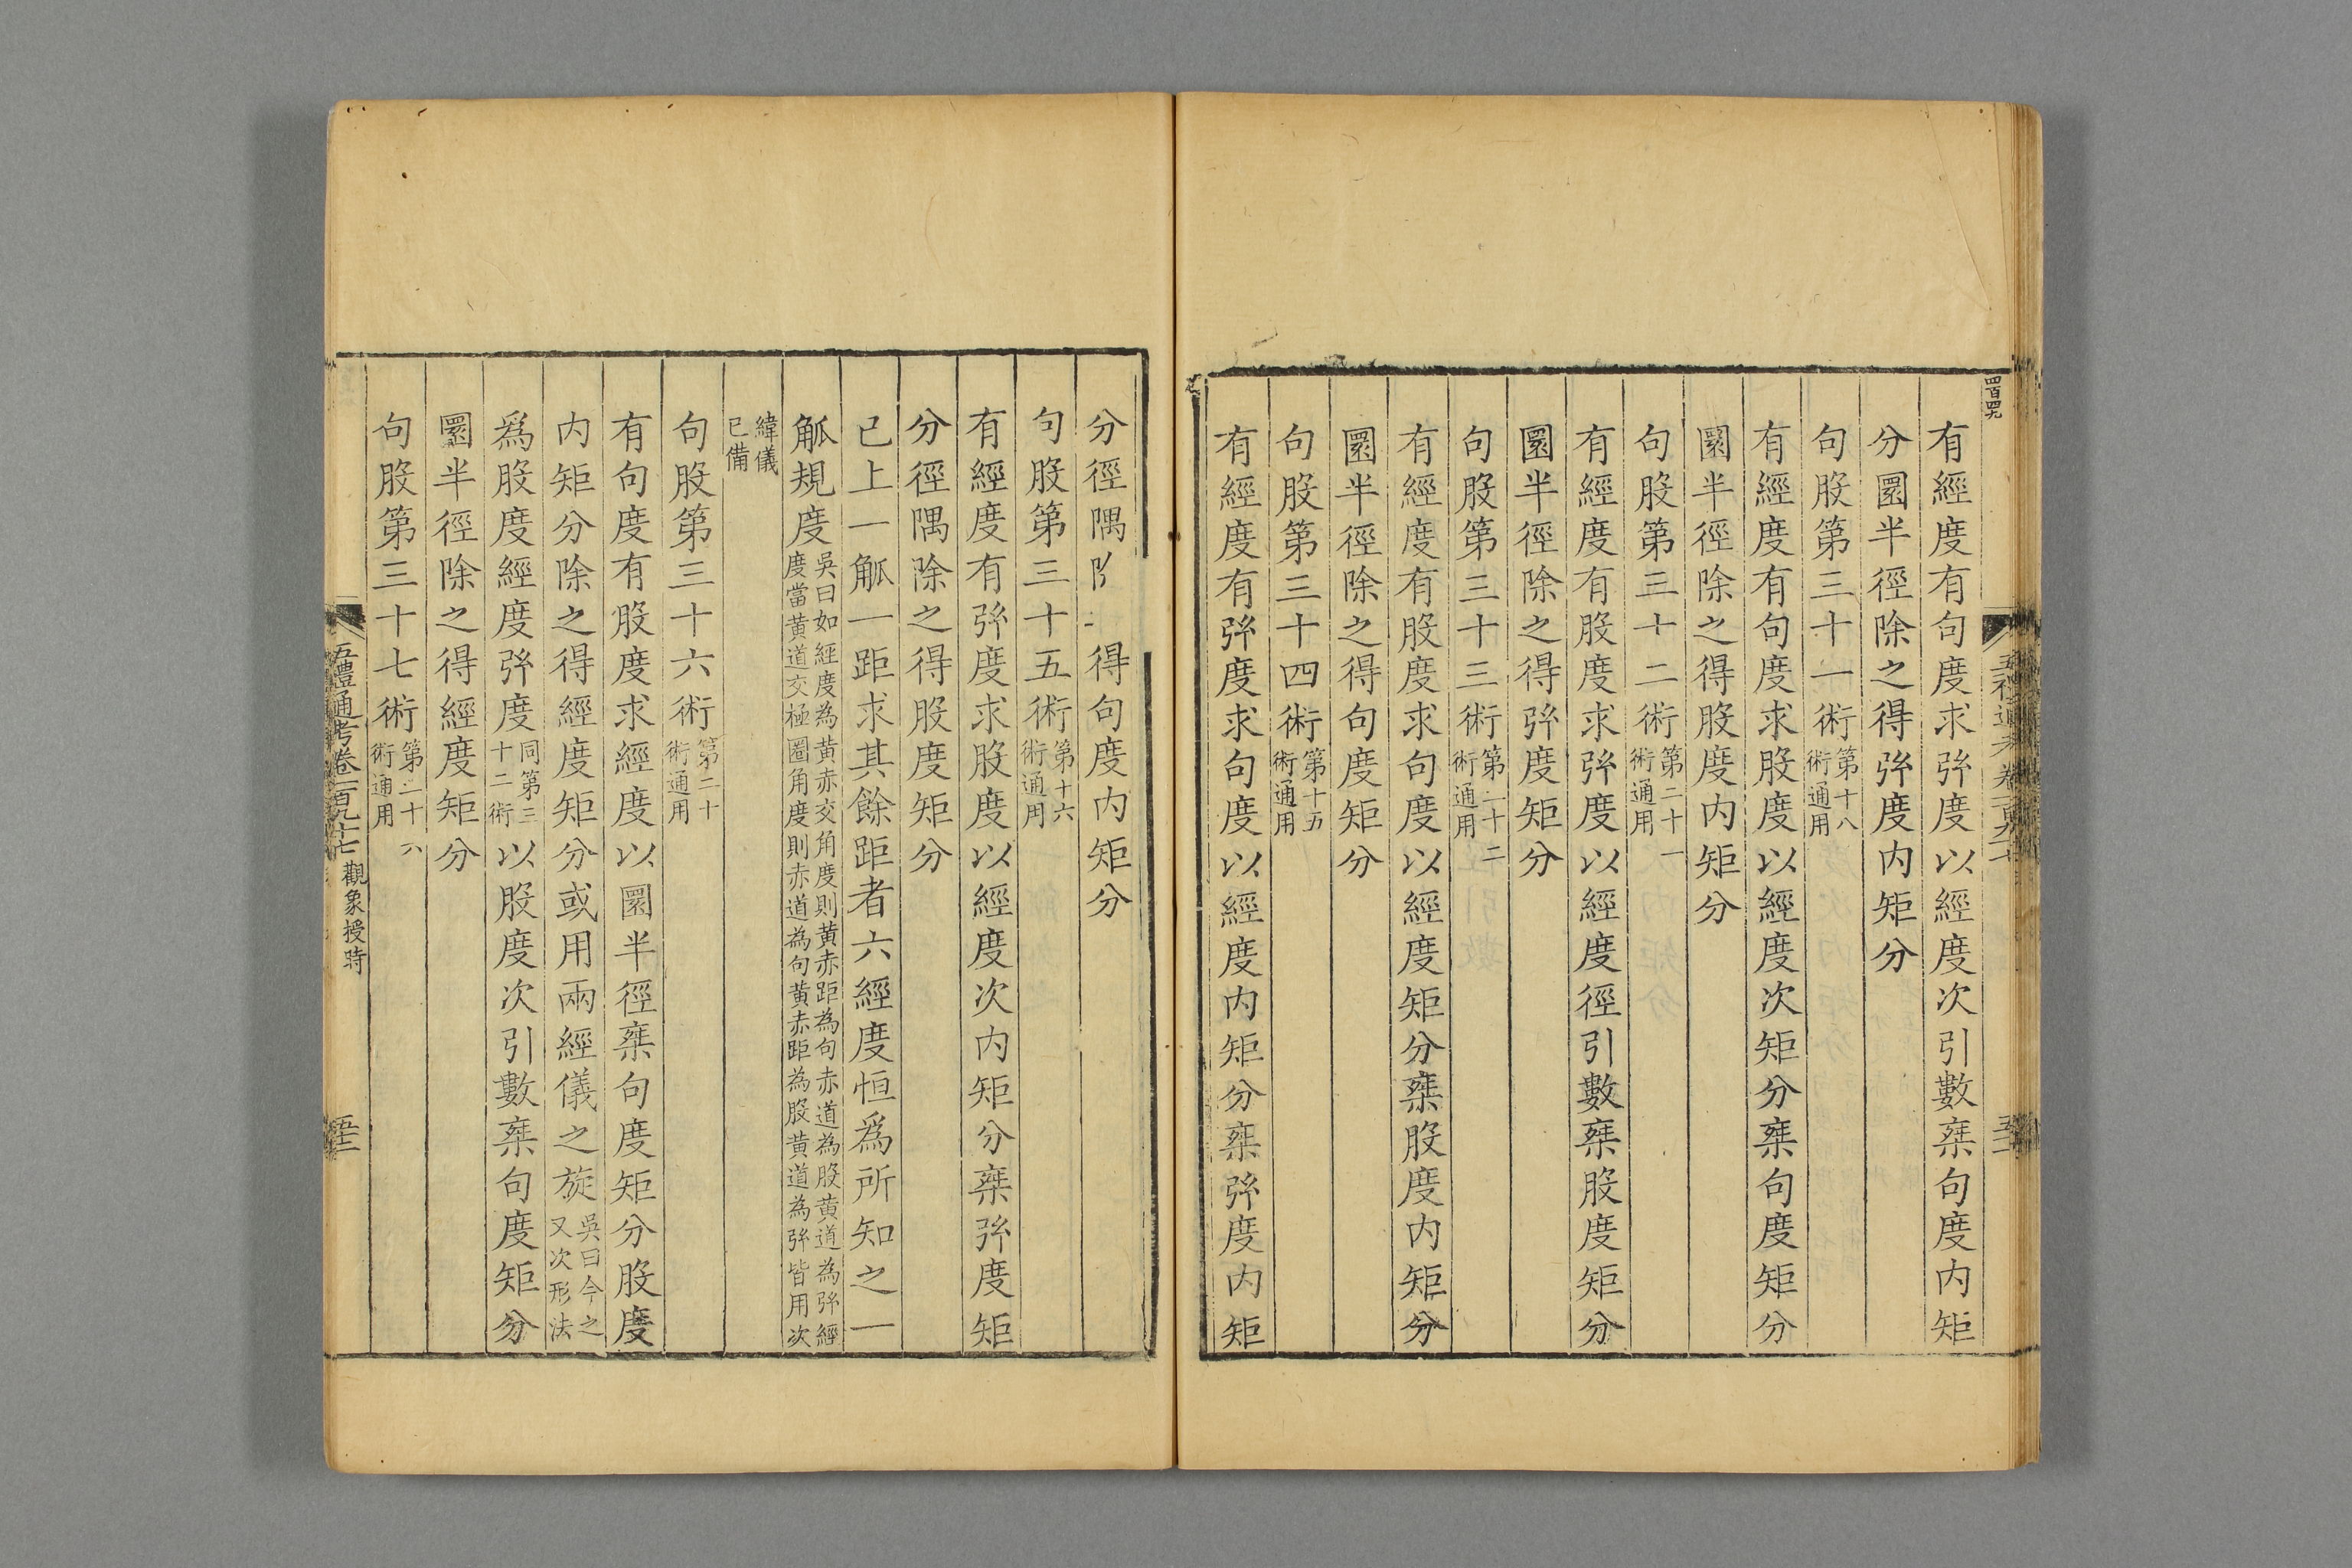 四百四九
有經度有句度求弥度以經度次引數椉句度内矩
分圜半徑除之得弥度内矩分
句股第三十一術第十八術通用
有經度有句度求股度以經度次矩分椉句度矩分
圜半徑除之得股度内矩分
句股第三十二術第二十一術通用
有經度有股度求弥度以經度徑引數椉股度矩分
圜半徑除之得弥度矩分
句股第三十三術第二十二術通用
有經度有股度求句度以經度矩分椉股度内矩分
圜半徑除之得句度矩分
句股第三十四術第十五術通用
有經度有弥度求句度以經度内矩分椉弥度内矩
分徑隅得句度内矩分
句股第三十五術第十六術通用
有經度有弥度求股度以經度次内矩分椉弥度矩
分徑隅除之得股度矩分
已上一觚一距求其餘距者六經度恒爲所知之一
觚規度吳曰如經度為黃赤交角度則黃赤距為句赤道為股黃道為弥經
度當黃道交極圈角度則赤道為句黃赤距為股黃道為弥皆用次
緯儀
已備
句股第三十六術第二十術通用
有句度有股度求經度以圜半徑椉句度矩分股度
内矩分除之得經度矩分或用兩經儀之旋吳曰今之又次形法
爲股度經度弥度同第三十二術以股度次引數椉句度矩分
圜半徑除之得經度矩分
句股第三十七術第二十六術通用
五禮通考卷一百九十七 觀象授時